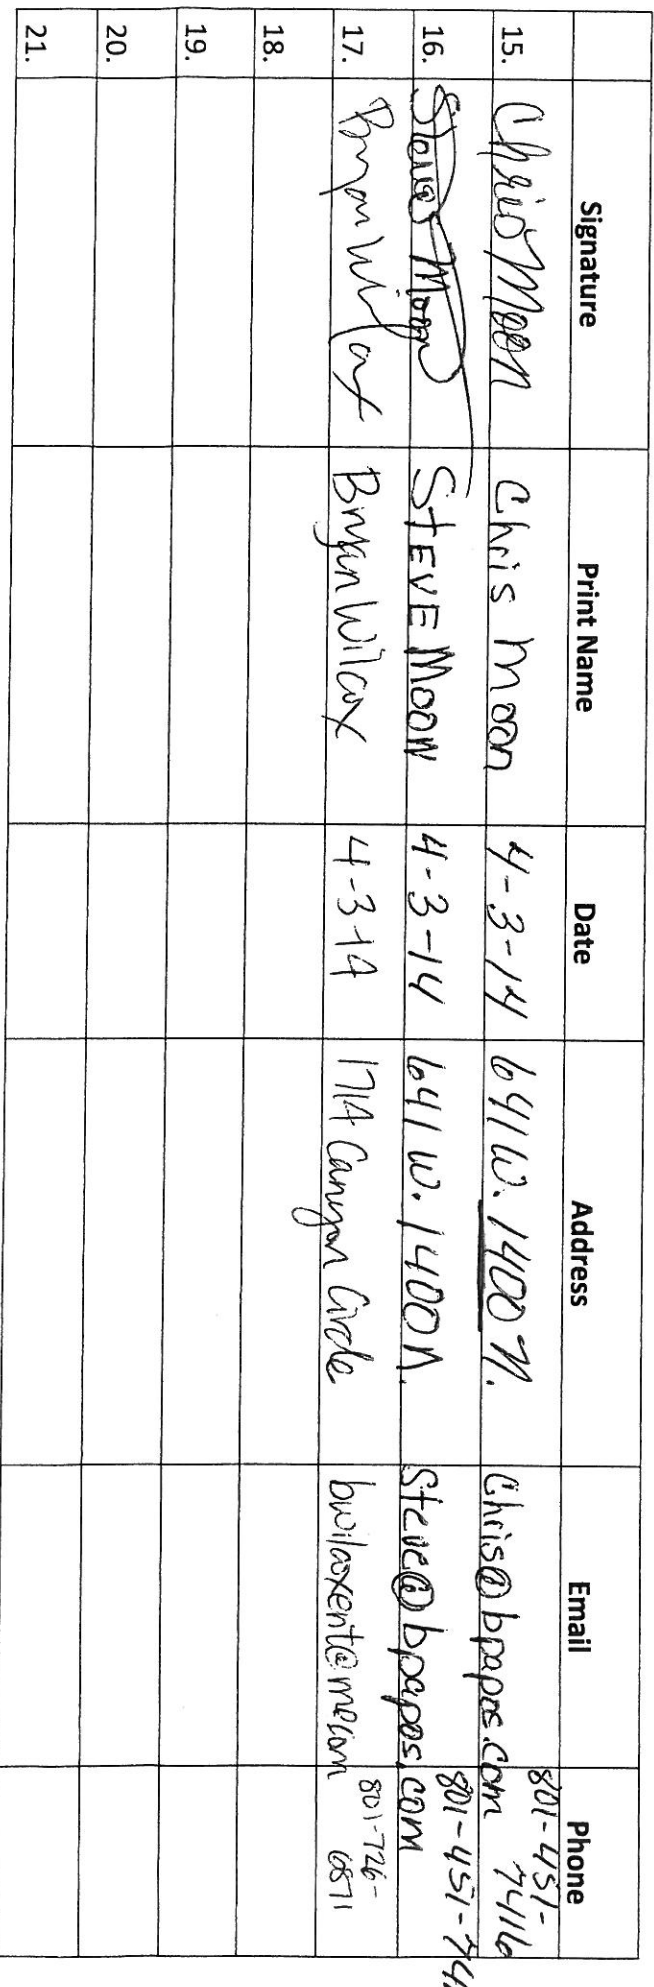 Signature Print Name Date Address Email Phone
15. Chris Moon Chris Moon 4-3-14 641 W. 1400 N. Chris@bpapos.com 801-451-7416
16. Steve Moon STEVE MOON 4-3-14 641 W. 1400 N. Steve@bpapos.com 801-451-74
17. Bryan Wilcox Bryan Wilcox 4-3-14 1714 Canyon Circle bwilcoxent@me.com 801-726-
18.
19.
20.
21.